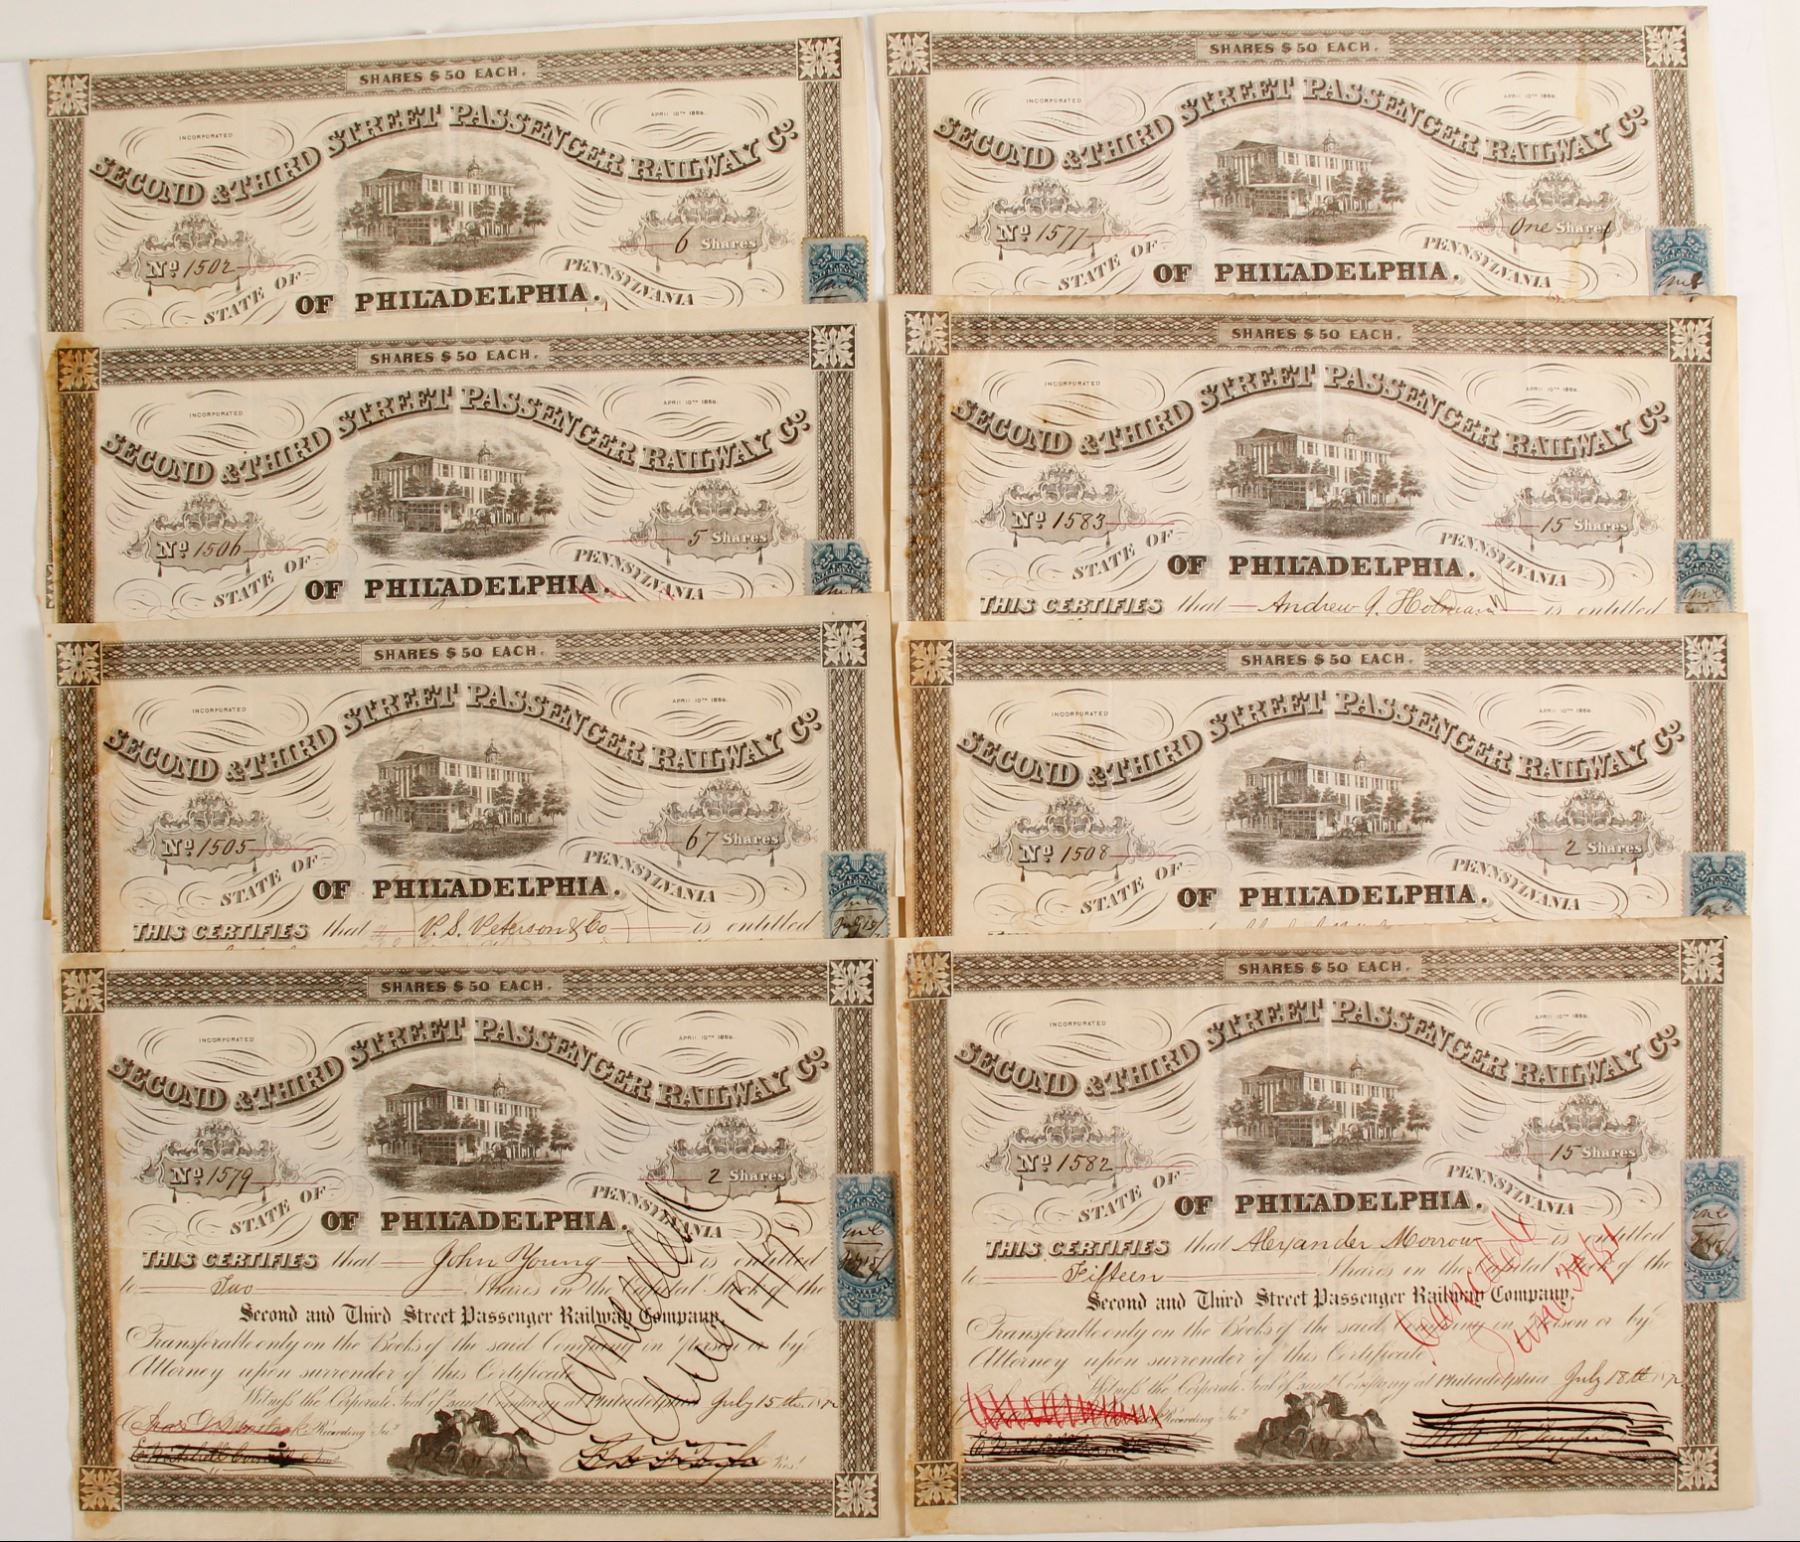 SHARES $50 EACH.
INCORPORATED APRIL 10TH 1858.
SECOND & THIRD STREET PASSENGER RAILWAY Co.
No 1502
6 Shares
STATE OF PENNSYLVANIA
OF PHILADELPHIA.
SHARES $50 EACH.
INCORPORATED APRIL 10TH 1858.
SECOND & THIRD STREET PASSENGER RAILWAY Co.
No 1577
One Shares
STATE OF PENNSYLVANIA
OF PHILADELPHIA.
SHARES $50 EACH.
INCORPORATED APRIL 10TH 1858.
SECOND & THIRD STREET PASSENGER RAILWAY Co.
No 1506
5 Shares
STATE OF PENNSYLVANIA
OF PHILADELPHIA.
SHARES $50 EACH.
INCORPORATED APRIL 10TH 1858.
SECOND & THIRD STREET PASSENGER RAILWAY Co.
No 1583
15 Shares
STATE OF PENNSYLVANIA
OF PHILADELPHIA.
THIS CERTIFIES that Andrew J. Holman is entitled
SHARES $50 EACH.
INCORPORATED APRIL 10TH 1858.
SECOND & THIRD STREET PASSENGER RAILWAY Co.
No 1505
67 Shares
STATE OF PENNSYLVANIA
OF PHILADELPHIA.
THIS CERTIFIES that V. S. Peterson & Co is entitled
SHARES $50 EACH.
INCORPORATED APRIL 10TH 1858.
SECOND & THIRD STREET PASSENGER RAILWAY Co.
No 1508
2 Shares
STATE OF PENNSYLVANIA
OF PHILADELPHIA.
SHARES $50 EACH.
INCORPORATED APRIL 10TH 1858.
SECOND & THIRD STREET PASSENGER RAILWAY Co.
No 1579
2 Shares
STATE OF PENNSYLVANIA
OF PHILADELPHIA.
THIS CERTIFIES that John Young is entitled
to Two Shares in the Capital Stock of the
Second and Third Street Passenger Railway Company,
Transferable only on the Books of the said Company in Person or by
Attorney upon surrender of this Certificate
Witness the Corporate Seal of said Company at Philadelphia July 15th 1872
Recording Sec.
Pres.
Cancelled
Aug
SHARES $50 EACH.
INCORPORATED APRIL 10TH 1858.
SECOND & THIRD STREET PASSENGER RAILWAY Co.
No 1582
15 Shares
STATE OF PENNSYLVANIA
OF PHILADELPHIA.
THIS CERTIFIES that Alexander Morrow is entitled
to Fifteen Shares in the Capital Stock of the
Second and Third Street Passenger Railway Company,
Transferable only on the Books of the said Company in Person or by
Attorney upon surrender of this Certificate
Witness the Corporate Seal of said Company at Philadelphia July 18th 1872
Recording Sec.
Cancelled
June